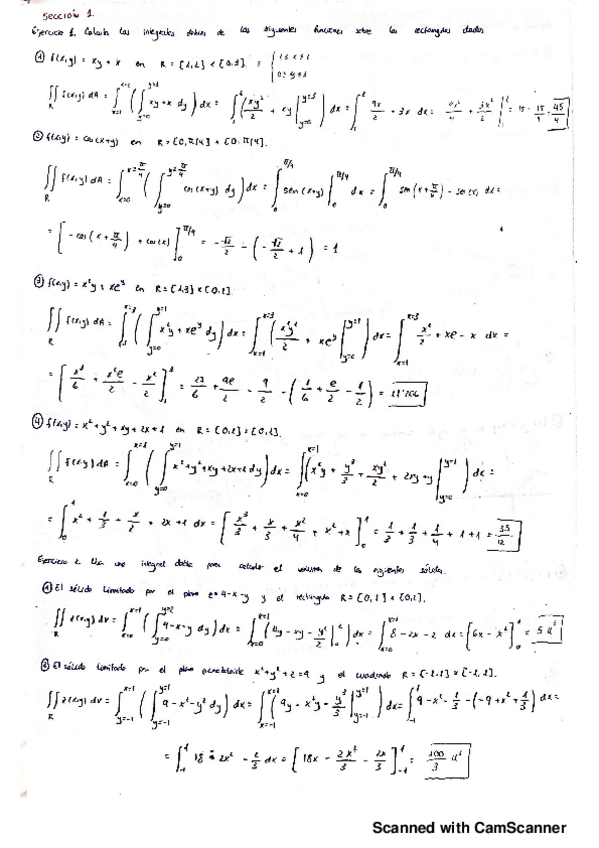 Sección 1.
Ejercicio 1. Calcula las integrales dobles de las siguientes funciones sobre los rectángulos dados.
① f(x,y) = xy + x en R = [1,2] × [0,3].
∬_R f(x,y) dA = ∫_{x=1}^{x=2} (∫_{y=0}^{y=3} xy + x dy) dx = ∫_1^2 (xy²/2 + xy |_{y=0}^{y=3}) dx = ∫_1^2 9x/2 + 3x dx = 9x²/4 + 3x²/2 |_1^2 = 15 - 15/4 = 45/4
② f(x,y) = cos(x+y) en R = [0,π/4] × [0,π/4].
∬_R f(x,y) dA = ∫_{x=0}^{x=π/4} (∫_{y=0}^{y=π/4} cos(x+y) dy) dx = ∫_0^{π/4} sen(x+y) |_0^{π/4} dx = ∫_0^{π/4} sen(x + π/4) - sen(x) dx =
= [-cos(x + π/4) + cos(x)]_0^{π/4} = √2/2 - (-√2/2 + 1) = 1
③ f(x,y) = x²y + xe^y en R = [1,3] × [0,1].
∬_R f(x,y) dA = ∫_1^{x=3} (∫_{y=0}^{y=1} x²y + xe^y dy) dx = ∫_{x=1}^{x=3} (x²y²/2 + xe^y |_{y=0}^{y=1}) dx = ∫_{x=1}^{x=3} x²/2 + xe - x dx =
= [x³/6 + x²e/2 - x²/2]_1^3 = 27/6 + 9e/2 - 9/2 - (1/6 + e/2 - 1/2) =
④ f(x,y) = x² + y² + xy + 2x + 1 en R = [0,1] × [0,1].
∬_R f(x,y) dA = ∫_{x=0}^{x=1} (∫_{y=0}^{y=1} x² + y² + xy + 2x + 1 dy) dx = ∫_{x=0}^{x=1} (x²y + y³/3 + xy²/2 + 2xy + y |_{y=0}^{y=1}) dx =
= ∫_0^1 x² + 1/3 + x/2 + 2x + 1 dx = [x³/3 + x/3 + x²/4 + x² + x]_0^1 = 1/3 + 1/3 + 1/4 + 1 + 1 = 35/12
Ejercicio 2. Usa una integral doble para calcular el volumen de los siguientes sólidos.
① El sólido limitado por el plano z = 4-x-y y el rectángulo R = [0,1] × [0,2].
∬_R z(x,y) dv = ∫_{x=0}^{x=1} (∫_{y=0}^{y=2} 4-x-y dy) dx = ∫_{x=0}^{x=1} (4y - xy - y²/2 |_0^2) dx = ∫_{x=0}^{x=1} 8 - 2x - 2 dx = [6x - x²]_0^1 = 5 u³
② El sólido limitado por el plano x² + y² + z = 9 y el cuadrado R = [-1,1] × [-1,1].
∬_R z(x,y) dv = ∫_{y=-1}^{x=1} (∫_{y=-1}^{y=1} 9 - x² - y² dy) dx = ∫_{x=-1}^{x=1} (9y - x²y - y³/3 |_{y=-1}^{y=1}) dx = ∫_{-1}^1 9 - x² - 1/3 - (-9 + x² + 1/3) dx =
= ∫_{-1}^1 18 - 2x² - 2/3 dx = [18x - 2x³/3 - 2x/3]_{-1}^1 = 100/3 u³
Scanned with CamScanner